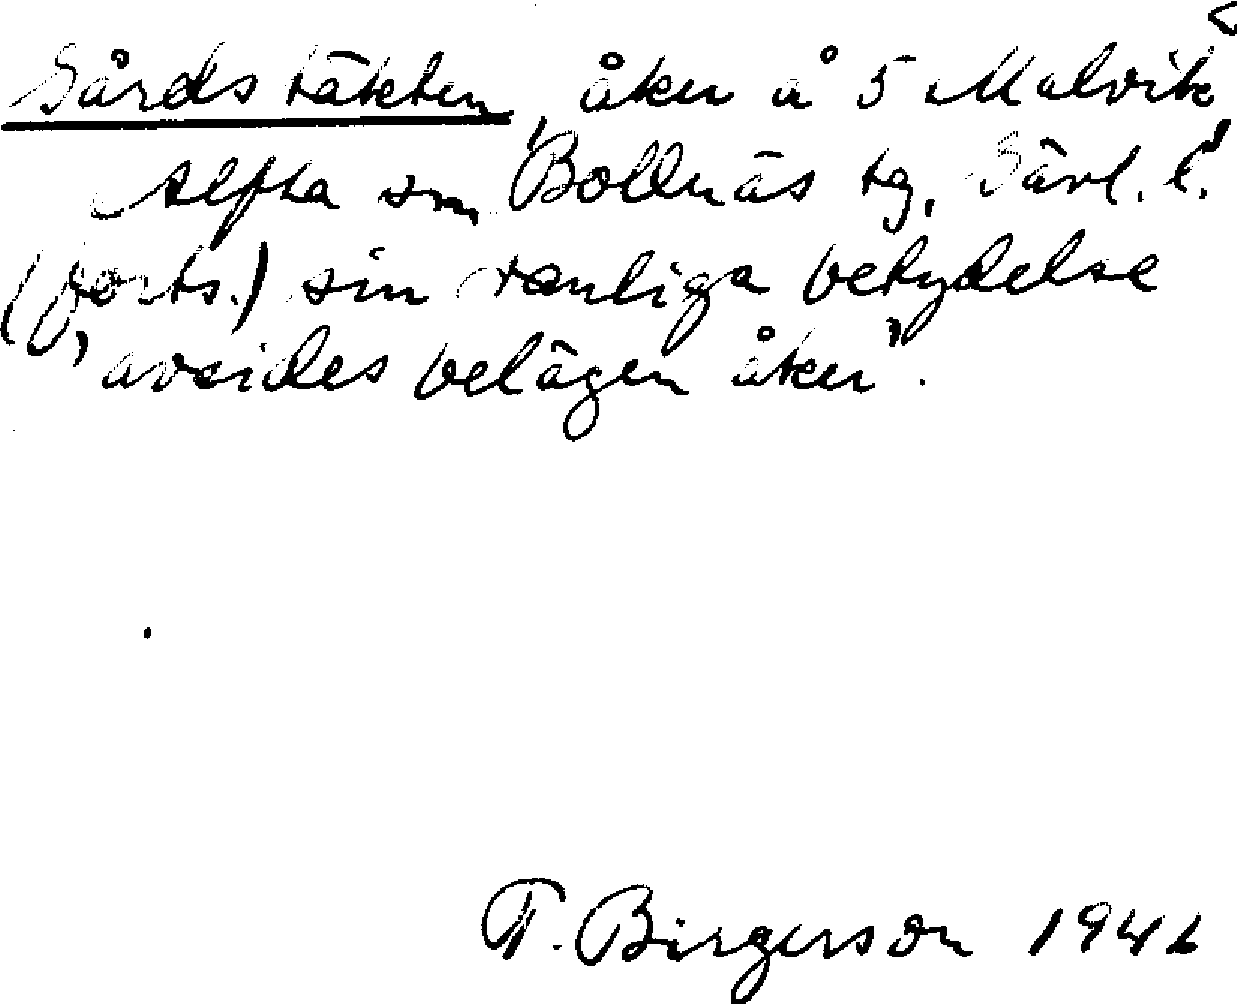 Gårdstäkten, åker å 5 Malvik
Alfta sn, Bollnäs tg, Gävl. l.
(forts.) sin vanliga betydelse
'avsides belägen åker'.
T. Birgerson 1946